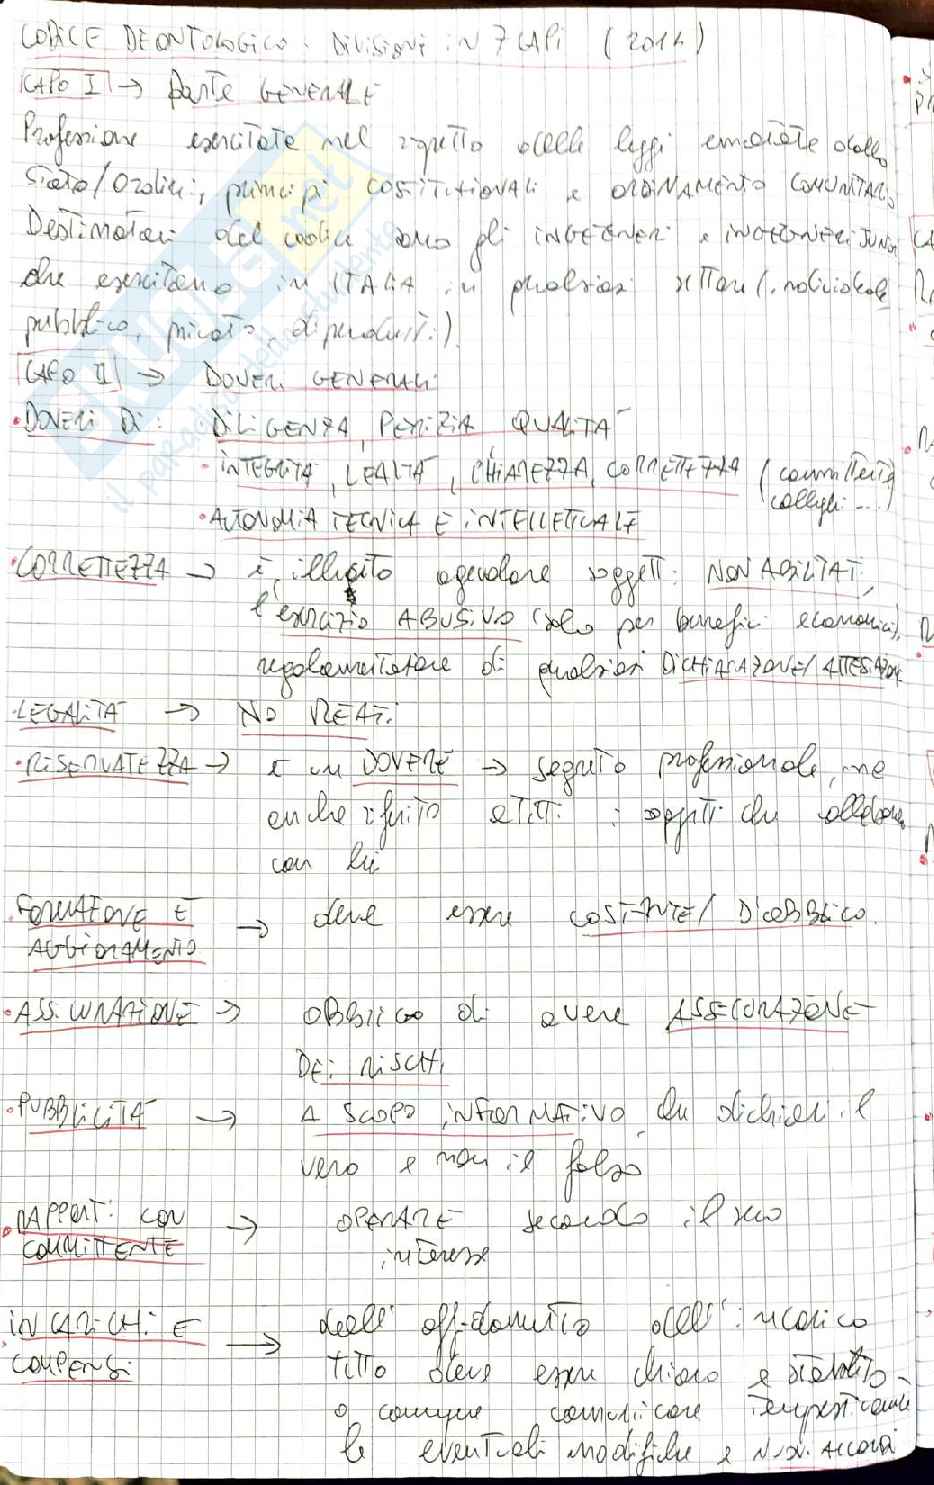 CODICE DEONTOLOGICO: DIVISIONI IN 7 CAPI (2014)
CAPO I → PARTE GENERALE
Professione esercitata nel rispetto delle leggi emanate dallo
Stato/Ordini, principi COSTITUZIONALI e ORDINAMENTO COMUNITARIO
Destinatari del codice sono gli INGEGNERI e INGEGNERI JUNIOR
che esercitano in ITALIA in qualsiasi settore (individuale
pubblico, privato, dipendenti.)
CAPO II → DOVERI GENERALI
• DOVERI DI: DILIGENZA, PERIZIA QUALITÀ
• INTEGRITÀ, LEALTÀ, CHIAREZZA, CORRETTEZZA (committenti
colleghi ...)
• AUTONOMIA TECNICA E INTELLETTUALE
• CORRETTEZZA → è illecito agevolare soggetti NON ABILITATI,
l'esercizio ABUSIVO (solo per benefici economici),
regolamentazione di qualsiasi DICHIARAZIONE/ATTESTAZIONE
• LEGALITÀ → NO REATI
• RISERVATEZZA → è un DOVERE → segreto professionale, ma
anche tutti i soggetti che collaborano
con lui
• FORMAZIONE E
AGGIORNAMENTO → deve essere COSTANTE/D'OBBLIGO.
• ASSICURAZIONE → OBBLIGO di avere ASSICURAZIONE
DEI RISCHI
• PUBBLICITÀ → A SCOPO INFORMATIVO, che dichiari il
vero e non il falso
• RAPPORTI CON
COMMITTENTE → OPERARE secondo il suo
interesse
INCARICHI E
COMPENSI → dall'affidamento dell'incarico
tutto deve essere chiaro e stabilito
o comunque comunicare tempestivamente
le eventuali modifiche e ACCORDI
SKUOLA.net
il paradiso dello studente